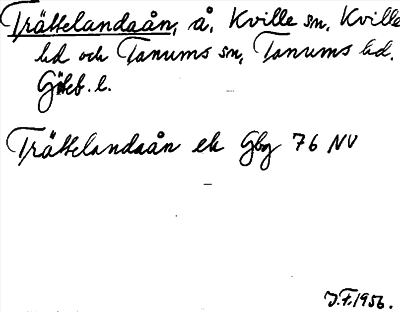 Trättelandaån, å, Kville sn, Kville
hd och Tanums sn, Tanums hd.
Göteb. l.
Trättelandaån ek Gbg 76 NV
J.F. 1956.